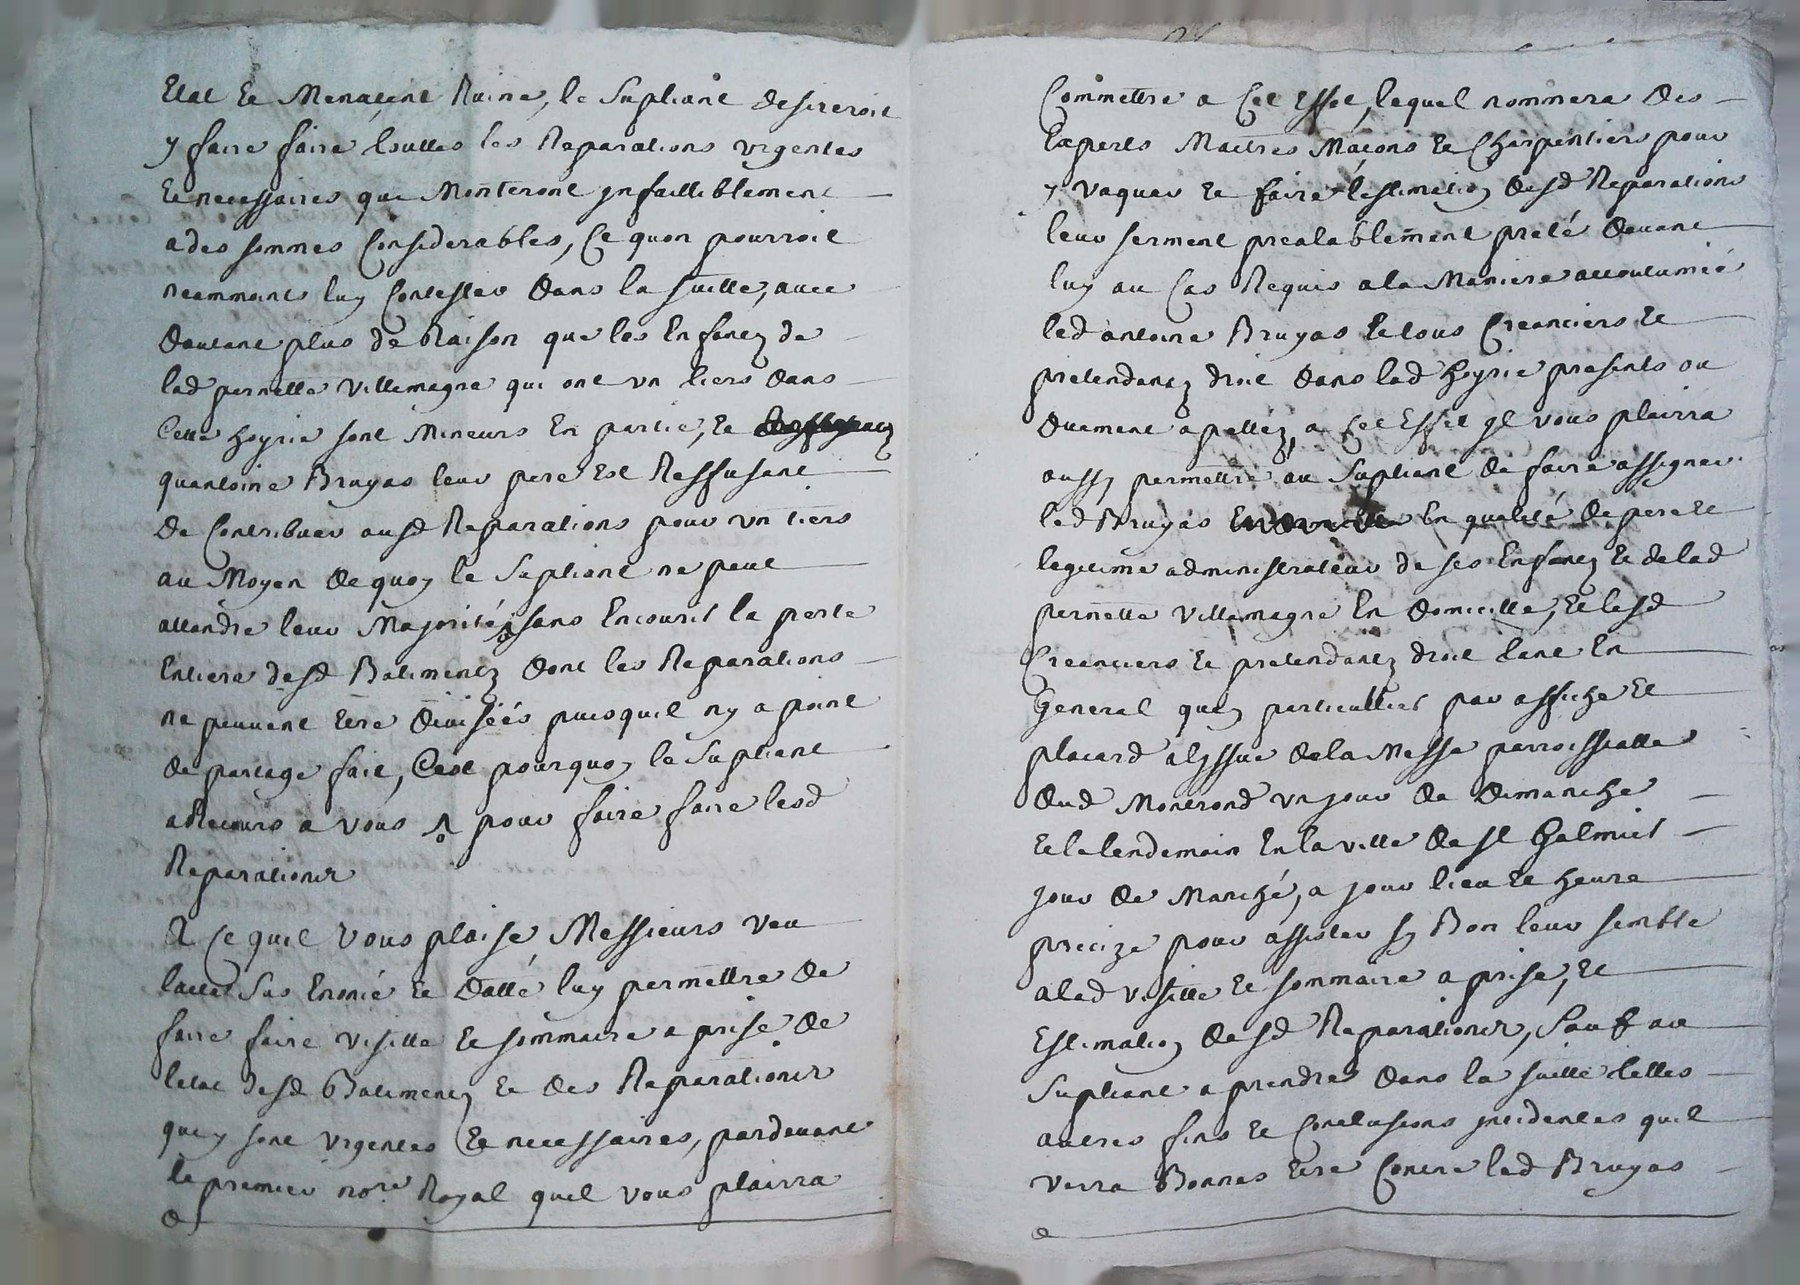 Etat Et Menacent Ruine, le Supliant desireroit
y faire faire touttes les Reparations vrgentes
Et necessaires qui Monteront jnfailliblement
a des sommes Considerables, Ce quon pourroit
neammoins luy Contester dans la suitte, avec
dautant plus de Raison que les Enfantz de
lad pernette villemagne qui ont vn tiers dans
Cette hoyrie sont Mineurs En partie, Et
quantoine Bruyas leur pere Est Reffusant
de Contribuer ausd Reparations pour vn tiers
au Moyen de quoy le Supliant ne peut
attendre leur Majorité, sans Encourir la perte
Entiere desd Batimentz dont les Reparations
ne peuvent Etre divisées puisquil ny a point
de partage fait, Cest pourquoy le Supliant
a Recours a vous pour faire faire lesd
Reparations
A Ce quil vous plaise Messieurs veu
lacte Sus Enoncé Et datté luy permettre de
faire faire visitte Et sommaire aprise de
letat desd Batimentz Et des Reparations
quy sont vrgentes Et necessaires, pardevant
le premier nore Royal quil vous plairra
Commettre a Cet Effet, lequel nommera des
Experts Maitres Maçons Et Charpentiers pour
y vaquer Et faire lestimation desd Reparations
leur serment prealablement preté devant
luy au Cas Requis a la Maniere accoutumée
led antoine Bruyas Et tous Creanciers Et
pretendantz droit dans lad hoyrie presents ou
duement apelléz, a Cet Effet jl vous plairra
aussy permettre au Supliant de faire assigner
led Bruyas En qualité de pere Et
legitime administrateur de ses Enfantz Et de lad
pernette villemagne En domicille, Et lesd
Creanciers Et pretendantz droit tant En
General quen particullier par affiche Et
placard a lyssue de la Messe parroissialle
dud Montrond vn jour de dimanche
Et le lendemain En la ville de St Galmier
jour de Marché, a jour lieu Et heure
precize pour assister sy Bon leur semble
a lad visitte Et sommaire aprise, Et
Estimation desd Reparations, Sauf au
Supliant a prendre dans la suitte telles
autres fins Et Conclusions jncidentes quil
verra Bonnes Etre Contre led Bruyas